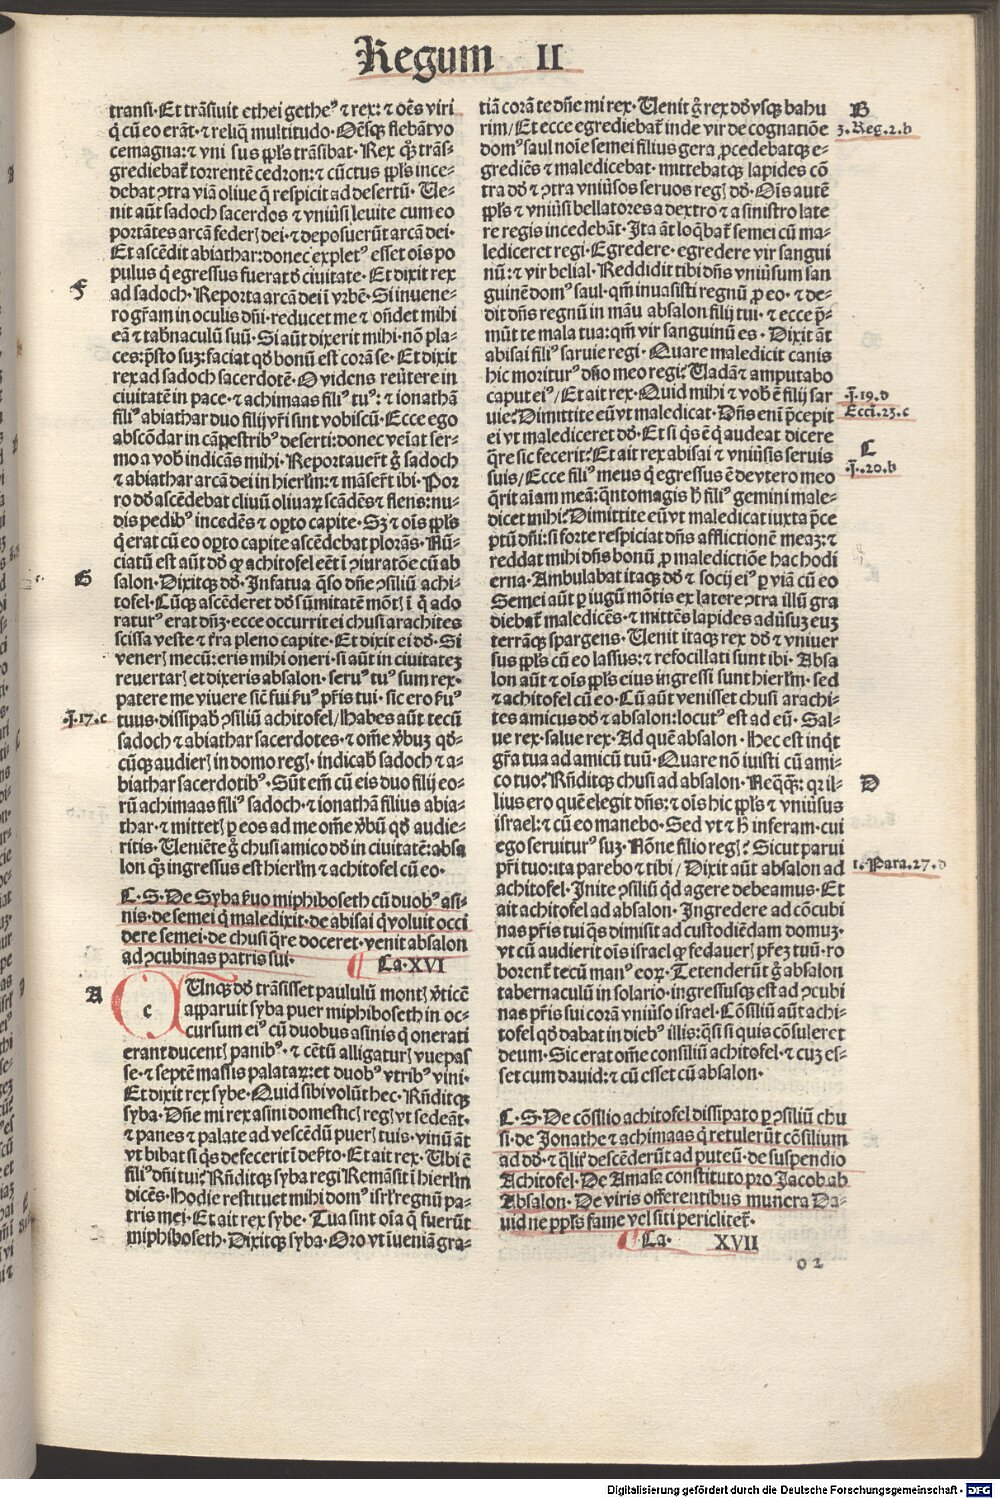 Regum II
transi. Et trāsiuit ethei gethe⁹ ⁊ rex: ⁊ oēs viri
q̇ cū eo erāt. ⁊ reliq̄ multitudo. Oēsqꝫ flebāt vo
ce magna: ⁊ vni sus ppl's trāsibat. Rex qꝫ trās-
grediebat̄ torrentē cedron: ⁊ cūctus ppl's ince-
debat ꝯtra viā oliue q̄ respicit ad desertū. Ue-
nit aūt sadoch sacerdos ⁊ vniūsi leuite cum eo
portātes arcā federꝭ dei. ⁊ deposuerūt arcā dei.
Et ascēdit abiathar: donec explet⁹ esset oīs po
pulus q̇ egressus fuerat d̓ ciuitate. Et dixit rex
ad sadoch. Reporta arcā dei ī vrbē. Si inuene-
ro gr̄am in oculis dn̄i. reducet me ⁊ on̄det mihi
eā ⁊ tab̓naculū suū. Si aūt dixerit mihi. nō pla-
ces: p̄sto suꝫ: faciat qd̓ bonū est corā se. Et dixit
rex ad sadoch sacerdotē. O videns reu̓tere in
ciuitatē in pace. ⁊ achimaas fili⁹ tu⁹: ⁊ ionathā
fili⁹ abiathar duo filij vr̄i sint vobiscū. Ecce ego
abscōdar in cāpestrib⁹ deserti: donec veīat ser-
mo a vob̓ indicās mihi. Reportauer̄t g̊ sadoch
⁊ abiathar arcā dei in hierlm̄: ⁊ māser̄t ibi. Por
ro dd̓ ascēdebat cliuū oliuaꝝ scādēs ⁊ flens: nu-
dis pedib⁹ incedēs ⁊ opto capite. Sꝫ ⁊ oīs ppl's
q̇ erat cū eo opto capite ascēdebat plorās. Nū-
ciatū est aūt dd̓ ꝙ achitofel eēt ī ꝯiuratōe cū ab
salon. Dixitqꝫ dd̓. Infatua q̄so dn̄e ꝯsiliū achi-
tofel. Cūqꝫ ascēderet dd̓ sūmitatē mōtꝭ ī q̇ ado
ratur⁹ erat dn̄ꝫ. ecce occurrit ei chusi arachites
scissa veste ⁊ tr̄a pleno capite. Et dixit ei dd̓. Si
venerꝭ mecū: eris mihi oneri. si aūt in ciuitateꝫ
reuertarꝭ et dixeris absalon. seru⁹ tu⁹ sum rex.
patere me viuere sic̄ fui ẜu⁹ pr̄is tui. sic ero ẜu⁹
tuus. dissipab̓ ꝯsiliū achitofel/ Habes aūt tecū
sadoch ⁊ abiathar sacerdotes. ⁊ om̄e v̓buꝫ qd̓-
cūqꝫ audierꝭ in domo regꝭ. indicab̓ sadoch ⁊ a-
biathar sacerdotib⁹. Sūt em̄ cū eis duo filij eo-
rū achimaas fili⁹ sadoch. ⁊ ionathā filius abia-
thar. ⁊ mittetꝭ ꝑ eos ad me om̄e v̓bū qd̓ audie-
ritis. Ueniēte g̊ chusi amico dd̓ in ciuitatē: absa
lon qꝫ ingressus est hierlm̄ ⁊ achitofel cū eo.
C. S. De Syba ẜuo miphiboseth cū duob⁹ asi-
nis. de semei q̇ maledixit. de abisai q̇ voluit occi
dere semei. de chusi q̄re doceret. venit absalon
ad ꝯcubinas patris sui. Ca. XVI
c Unqꝫ dd̓ trāsisset paululū montꝭ v̓ticē
apparuit syba puer miphiboseth in oc-
cursum ei⁹ cū duobus asinis q̇ onerati
erant ducentꝭ panib⁹. ⁊ cētū alligaturꝭ vue pas
se. ⁊ septē massis palataꝝ: et duob⁹ vtrib⁹ vini.
Et dixit rex sybe. Quid sibi volūt hec. Rn̄ditqꝫ
syba. Dn̄e mi rex asini domesticꝭ regꝭ vt sedeāt.
⁊ panes ⁊ palate ad vescēdū puerꝭ tuis. vinū āt
vt bibat si q̇s defecerit ī dese̓rto. Et ait rex. Ubi ē
fili⁹ dn̄i tui? Rn̄ditqꝫ syba regi Remāsit ī hierlm̄
dicēs. Hodie restituet mihi dom⁹ isrl' regnū pa-
tris mei. Et ait rex sybe. Tua sint oīa q̄ fuerūt
miphiboseth. Dixitqꝫ syba. Oro vt īueniā gra-
tiā corā te dn̄e mi rex. Uenit g̊ rex dd̓ vsqꝫ bahu
rim/ Et ecce egrediebat̄ inde vir de cognatiōe
dom⁹ saul noīe semei filius gera ꝓcedebatqꝫ e-
grediēs ⁊ maledicebat. mittebatqꝫ lapides cō
tra dd̓ ⁊ ꝯtra vniu̓sos seruos regꝭ dd̓. Oīs autē
ppl's ⁊ vniu̓si bellatores a dextro ⁊ a sinistro late
re regis incedebāt. Ita āt loq̄bat̄ semei cū ma-
lediceret regi. Egredere. egredere vir sangui
nū: ⁊ vir belial. Reddidit tibi dn̄s vniu̓sum san
guinē dom⁹ saul. qm̄ inuasisti regnū ꝓ eo. ⁊ de-
dit dn̄s regnū in māu absalon filij tui. ⁊ ecce p̄-
mūt te mala tua: qm̄ vir sanguinū es. Dixit āt
abisai fili⁹ saruie regi. Quare maledicit canis
hic moritur⁹ dn̄o meo regi? Uadā ⁊ amputabo
caput ei⁹/ Et ait rex. Quid mihi ⁊ vob̓ ē filij sar
uie? Dimittite eū vt maledicat. Dn̄s enī p̄cepit
ei vt malediceret dd̓. Et si q̇s ē q̇ audeat dicere
q̄re sic fecerit? Et ait rex abisai ⁊ vniu̓sis seruis
suis/ Ecce fili⁹ meus q̇ egressus ē de vtero meo
q̄rit aīam meā: q̄nto magis h̓ fili⁹ gemini male-
dicet mihi? Dimittite eū vt maledicat iuxta p̄ce
ptū dn̄i: si forte respiciat dn̄s afflictionē meaꝫ: ⁊
reddat mihi dn̄s bonū ꝓ maledictiōe hac hodi
erna. Ambulabat itaqꝫ dd̓ ⁊ socij ei⁹ ꝑ viā cū eo
Semei aūt ꝑ iugū mōtis ex latere ꝯtra illū gra
diebat̄ maledicēs. ⁊ mittēs lapides adu̓sus euꝫ
terrāqꝫ spargens. Uenit itaqꝫ rex dd̓ ⁊ vniuer
sus ppl's cū eo lassus: ⁊ refocillati sunt ibi. Absa
lon aūt ⁊ oīs ppl's eius ingressi sunt hierlm̄. sed
⁊ achitofel cū eo. Cū aūt venisset chusi arachi-
tes amicus dd̓ ⁊ absalon: locut⁹ est ad eū. Sal-
ue rex. salue rex. Ad quē absalon. Hec est inq̇t
gr̄a tua ad amicū tuū. Quare nō iuisti cū ami-
co tuo? Rn̄ditqꝫ chusi ad absalon. Neq̄qꝫ: qr il-
lius ero quē elegit dn̄s: ⁊ oīs hic ppl's ⁊ vniu̓sus
israel: ⁊ cū eo manebo. Sed vt ⁊ h̓ inferam. cui
ego seruitur⁹ suꝫ. Nōne filio regꝭ? Sicut parui
pr̄i tuo: ita parebo ⁊ tibi/ Dixit aūt absalon ad
achitofel. Inite ꝯsiliū qd̓ agere debeamus. Et
ait achitofel ad absalon. Ingredere ad cōcubi
nas pr̄is tui q̄s dimisit ad custodiēdam domuꝫ.
vt cū audierit oīs israel ꝙ fedauerꝭ pr̄eꝫ tuū. ro
borent̄ tecū man⁹ eoꝝ. Tetenderūt g̊ absalon
tabernaculū in solario. ingressusqꝫ est ad ꝯcubi
nas pr̄is sui corā vniu̓so israel. Cōsiliū aūt achi-
tofel qd̓ dabat in dieb⁹ illis: q̄si si quis cōsuleret
deum. Sic erat om̄e consiliū achitofel. ⁊ cuꝫ es-
set cum dauid: ⁊ cū esset cū absalon.
C. S. De cōsilio achitofel dissipato ꝑ ꝯsiliū chu
si. de Jonathe ⁊ achimaas q̇ retulerūt cōsilium
ad dd̓. ⁊ q̄lit̄ descēderūt ad puteū. de suspendio
Achitofel. De Amasa constituto pro Jacob ab
Absalon. De viris offerentibus munera Da-
uid ne ppl's fame vel siti periclitet̄.
Ca. XVII
o 2
F
G
.j.17.c
A
B
3.Reg.2.b
.j.19.d
Ecci.23.c
C
.j.20.b
D
1.Para.27.d
Digitalisierung gefördert durch die Deutsche Forschungsgemeinschaft - DFG